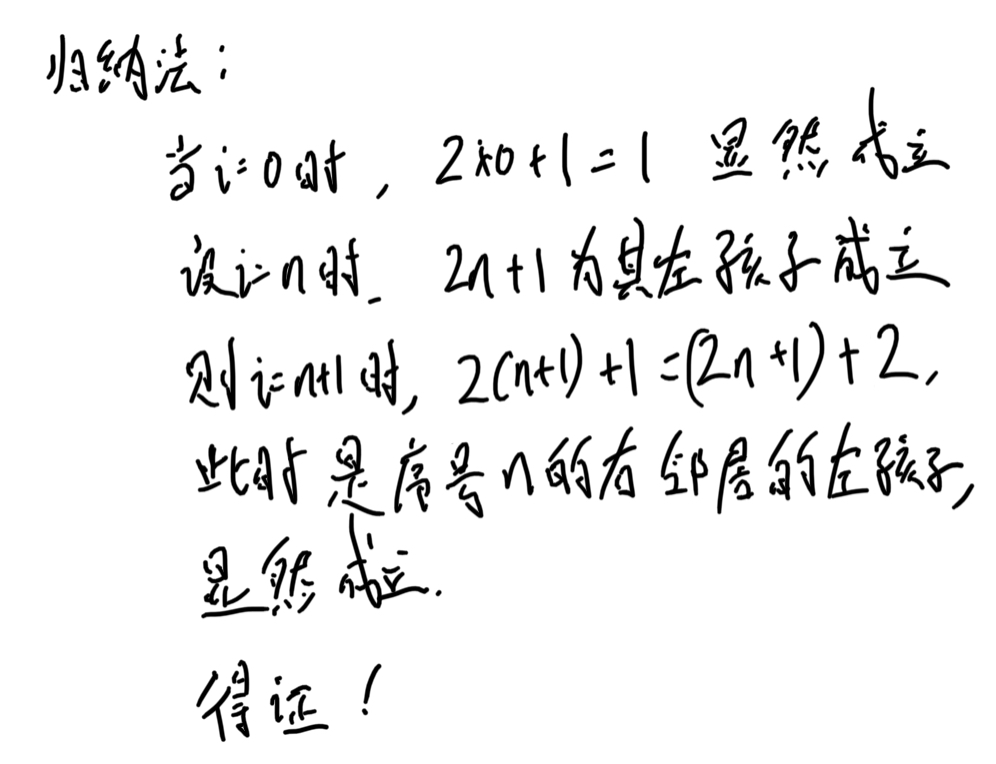 归纳法：
当i=0时，2×0+1=1 显然成立
设i=n时. 2n+1为其左孩子成立
则i=n+1时，2(n+1)+1=(2n+1)+2，
此时是序号n的右邻居的左孩子，
显然成立.
得证！